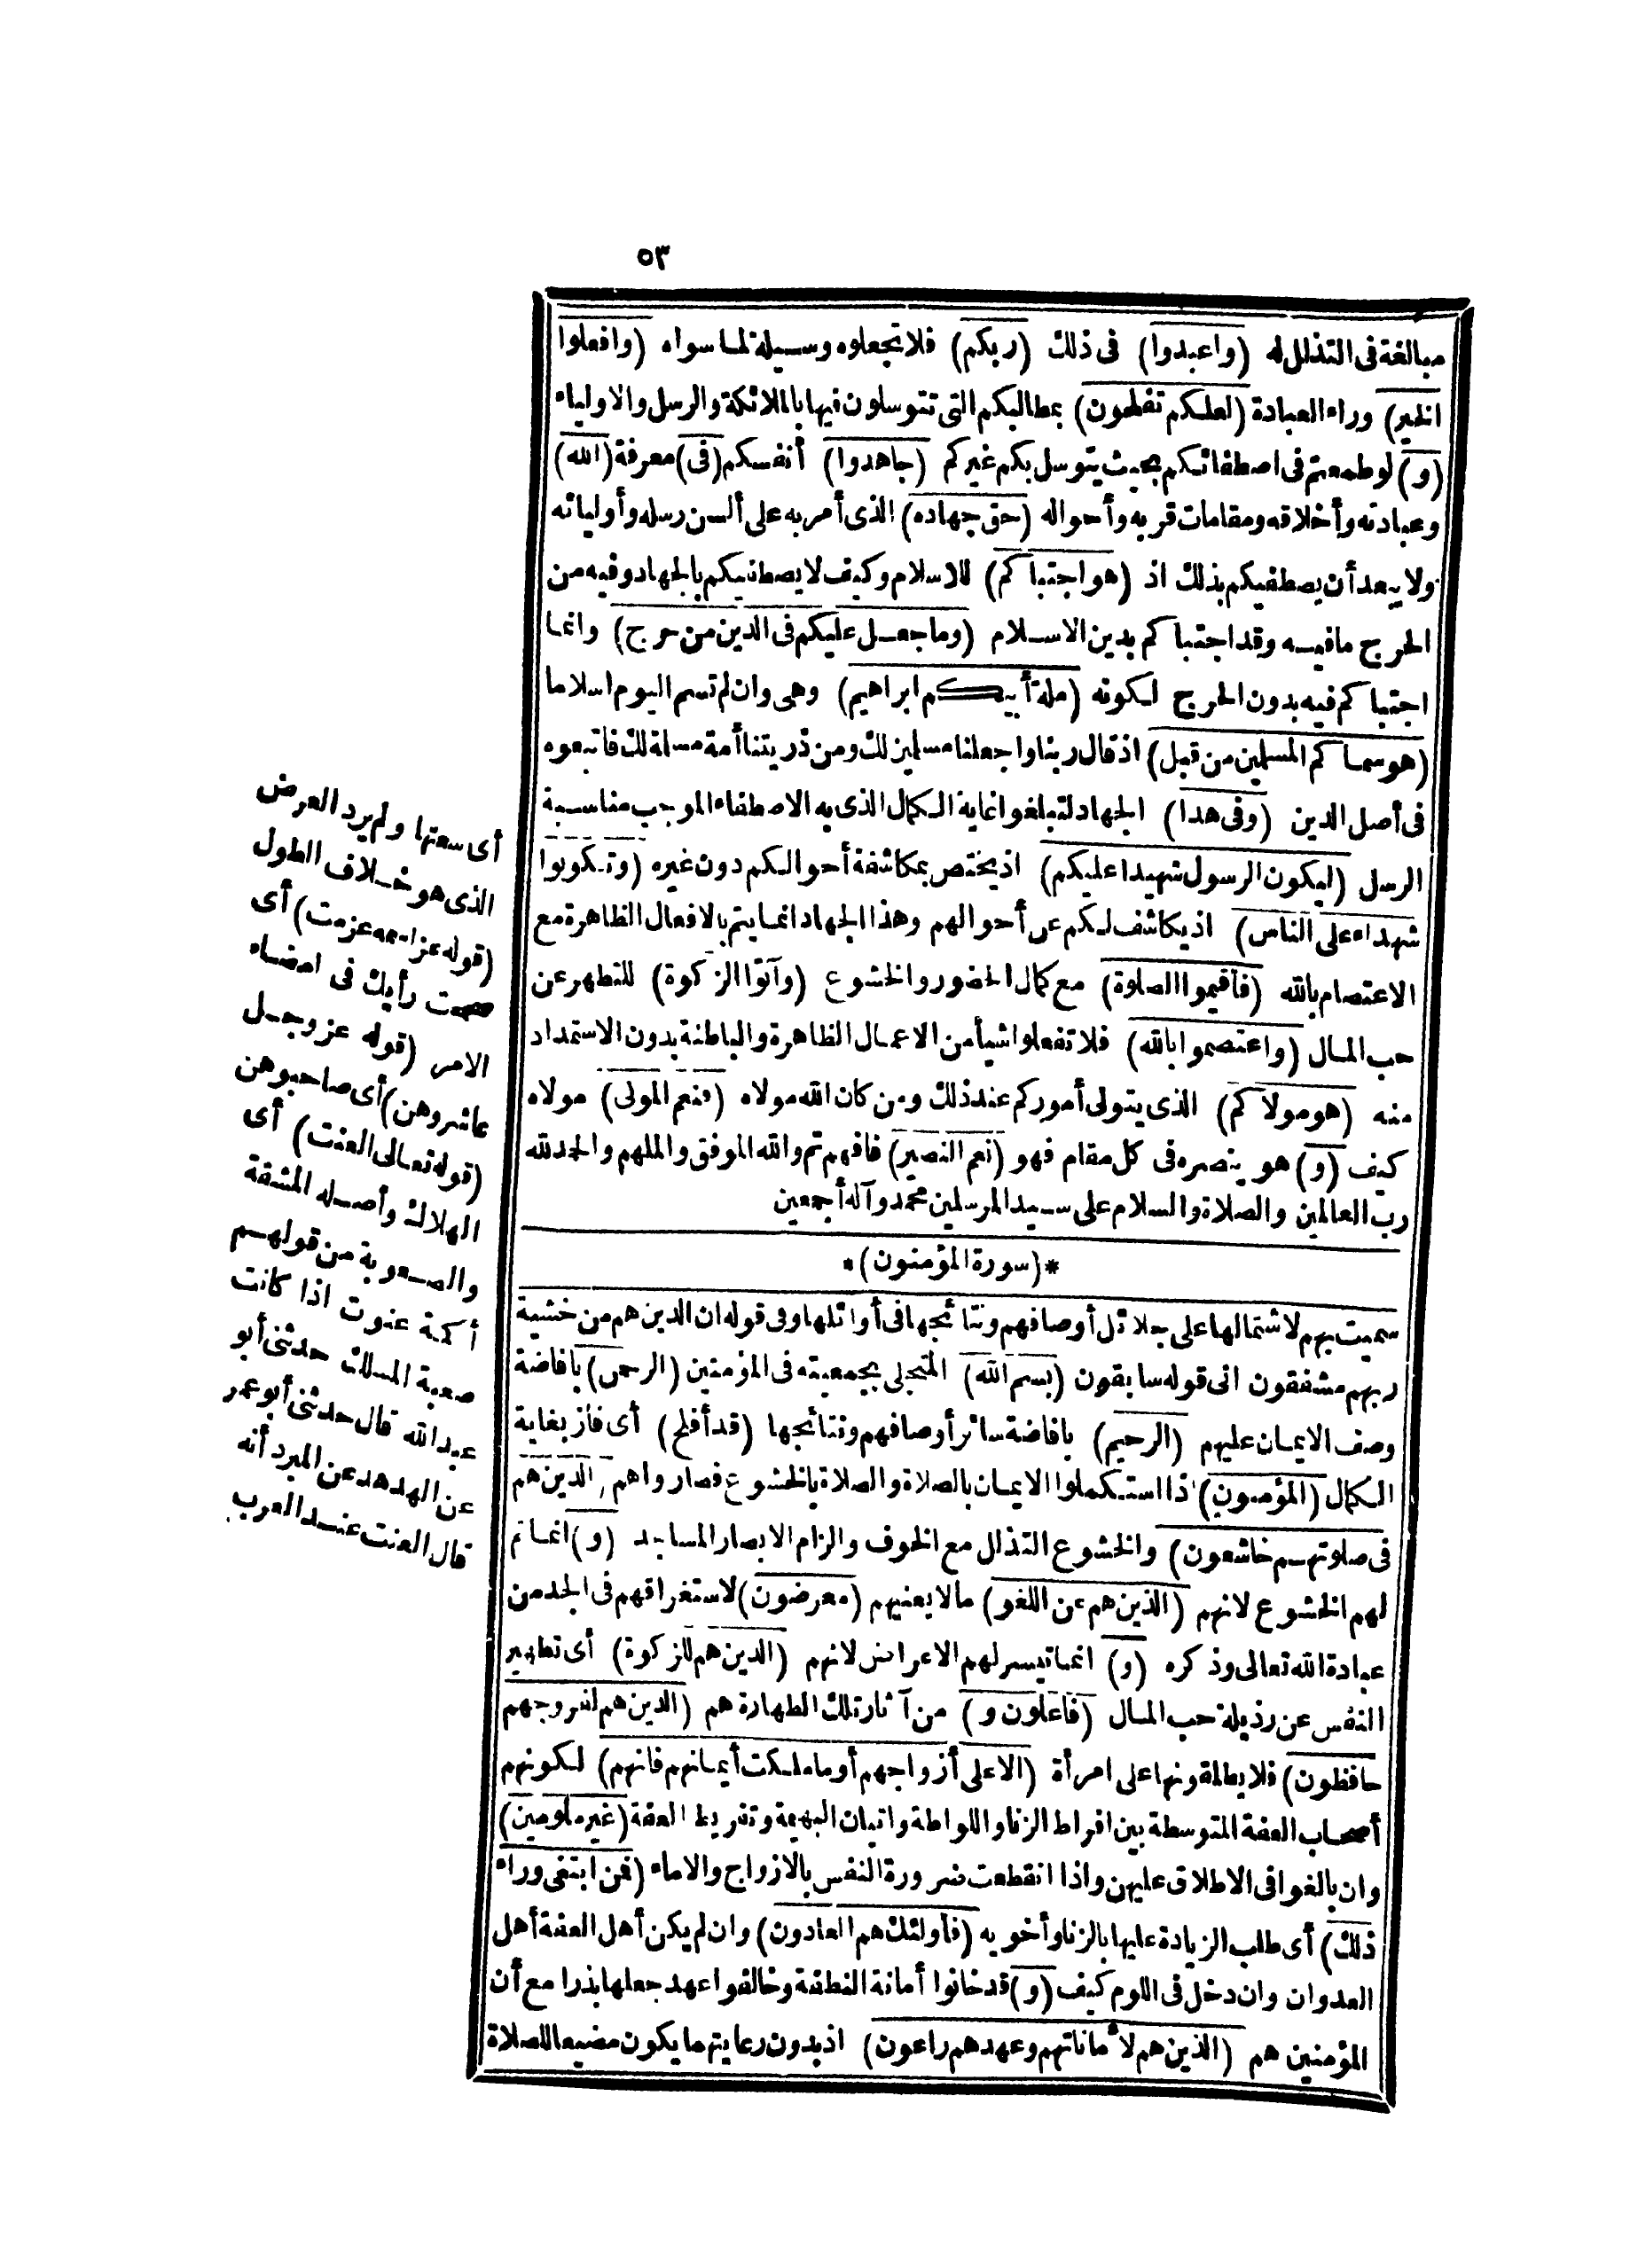 ٥٣
مبالغة فى التذلل له (واعبدوا) فى ذلك (ربكم) فلا تجعلوه وسيلة لما سواه (وافعلوا
الخير) وراء العبادة (لعلكم تفلحون) بمطالبكم التى تتوسلون فيها بالملائكة والرسل والاولياء
(و) لو طمعتم فى اصطفائكم بحيث يتوسل بكم غيركم (جاهدوا) أنفسكم (فى) معرفة (الله)
وعبادته وأخلاقه ومقامات قربه وأحواله (حق جهاده) الذى أمر به على ألسن رسله وأوليائه
ولا يبعد أن يصطفيكم بذلك اذ (هو اجتباكم) للاسلام وكيف لا يصطفيكم بالجهاد وفيه من
الحرج ما فيه وقد اجتباكم بدين الاسلام (وما جعل عليكم فى الدين من حرج) وانما
اجتباكم فيه بدون الحرج لكونه (ملة أبيكم ابراهيم) وهى وان لم تسم اليوم اسلاما
(هو سماكم المسلمين من قبل) اذ قال ربنا واجعلنا مسلمين لك ومن ذريتنا أمة مسلمة لك فاتبعوه
فى أصل الدين (وفى هذا) الجهاد لتبلغوا غاية الكمال الذى به الاصطفاء الموجب مناسبة
الرسل (ليكون الرسول شهيدا عليكم) اذ يختص بمكاشفة أحوالكم دون غيره (وتكونوا
شهداء على الناس) اذ يكاشف لكم عن أحوالهم وهذا الجهاد انما يتم بالافعال الظاهرة مع
الاعتصام بالله (فأقيموا الصلوة) مع كمال الحضور والخشوع (وآتوا الزكوة) للتطهر عن
حب المال (واعتصموا بالله) فلا تفعلوا شيأ من الاعمال الظاهرة والباطنة بدون الاستمداد
منه (هو مولاكم) الذى يتولى أموركم عند ذلك ومن كان الله مولاه (فنعم المولى) مولاه
كيف (و) هو ينصره فى كل مقام فهو (نعم النصير) فافهم تم والله الموفق والملهم والحمد لله
رب العالمين والصلاة والسلام على سيد المرسلين محمد وآله أجمعين
*(سورة المؤمنون)*
سميت بهم لاشتمالها على جلائل أوصافهم ونتائجها فى أوائلها وفى قوله ان الذين هم من خشية
ربهم مشفقون الى قوله سابقون (بسم الله) المتجلى بجمعيته فى المؤمنين (الرحمن) بافاضة
وصف الايمان عليهم (الرحيم) بافاضة سائر أوصافهم ونتائجها (قد أفلح) أى فاز بغاية
الكمال (المؤمنون) اذا استكملوا الايمان بالصلاة والصلاة بالخشوع فصاروا هم (الذين هم
فى صلوتهم خاشعون) والخشوع التذلل مع الخوف والزام الابصار المساجد (و) انما تم
لهم الخشوع لانهم (الذين هم عن اللغو) مالا يعنيهم (معرضون) لاستغراقهم فى الجد من
عبادة الله تعالى وذكره (و) انما تيسر لهم الاعراض لانهم (الذين هم للزكوة) أى تطهير
النفس عن رذيلة حب المال (فاعلون و) من آثار تلك الطهارة هم (الذين هم لفروجهم
حافظون) فلا يطلقونها على امرأة (الا على أزواجهم أو ما ملكت أيمانهم فانهم) لكونهم
أصحاب العفة المتوسطة بين افراط الزنا واللواطة واتيان البهيمة وتفريط العفة (غير ملومين)
وان بالغوا فى الاطلاق عليهن واذا انقطعت ضرورة النفس بالازواج والاماء (فمن ابتغى وراء
ذلك) أى طلب الزيادة عليها بالزنا وأخويه (فأولئك هم العادون) وان لم يكن أهل العفة أهل
العدوان وان دخل فى اللوم كيف (و) قد خانوا أمانة النطفة وخالفوا عهد جعلها بذرا مع أن
المؤمنين هم (الذين هم لأماناتهم وعهدهم راعون) اذ بدون رعايتهما يكون مضيعا للصلاة
أى سعتها ولم يرد العرض
الذى هو خلاف الطول
(قوله عزاسمه عزمت) أى
صححت رأيك فى امضاء
الامر (قوله عز وجل
عاشروهن) أى صاحبوهن
(قوله تعالى العنت) أى
الهلاك وأصله المشقة
والصعوبة من قولهم
أكمة عنوت اذا كانت
صعبة المسلك حدثنى أبو
عبد الله قال حدثنى أبو عمر
عن الهدهد عن المبرد أنه
قال العنت عند العرب